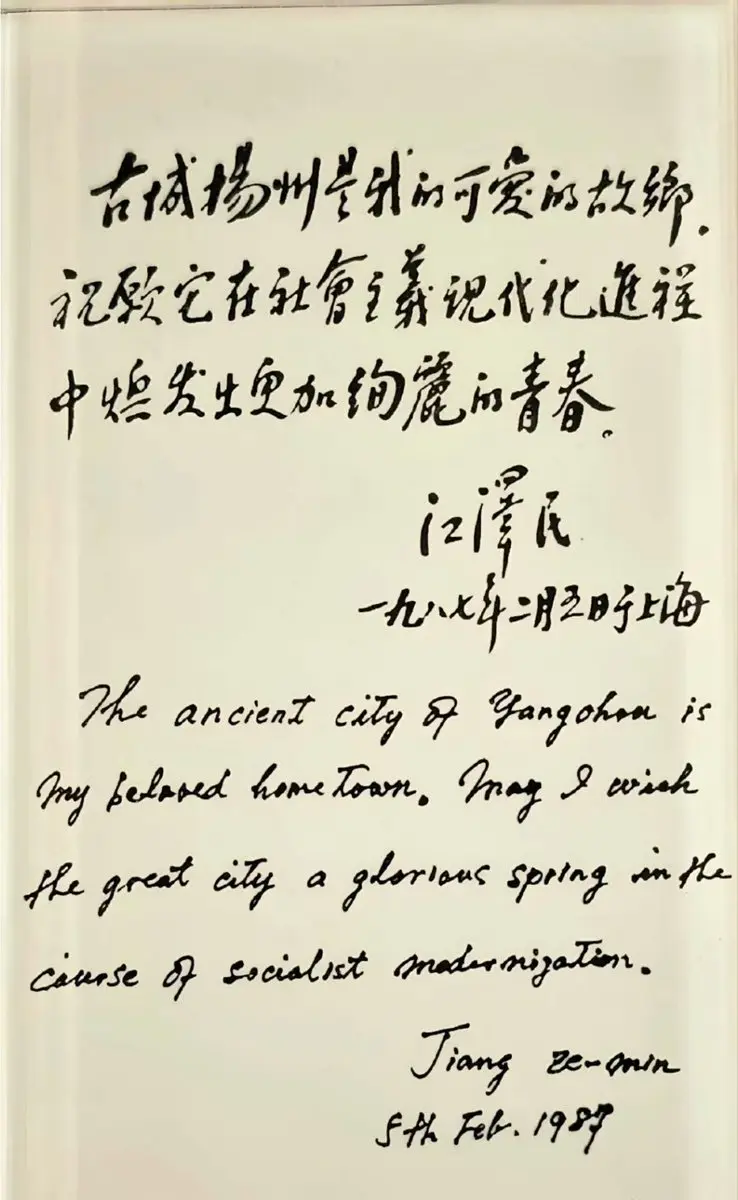 古城揚州是我的可爱的故鄉.
祝愿它在社會主義現代化進程
中焕发出更加绚麗的青春.
江澤民
一九八七年二月五日于上海
The ancient city of Yangzhou is
my beloved hometown. May I wish
the great city a glorious spring in the
course of socialist modernization.
Jiang Ze-min
5th Feb. 1987